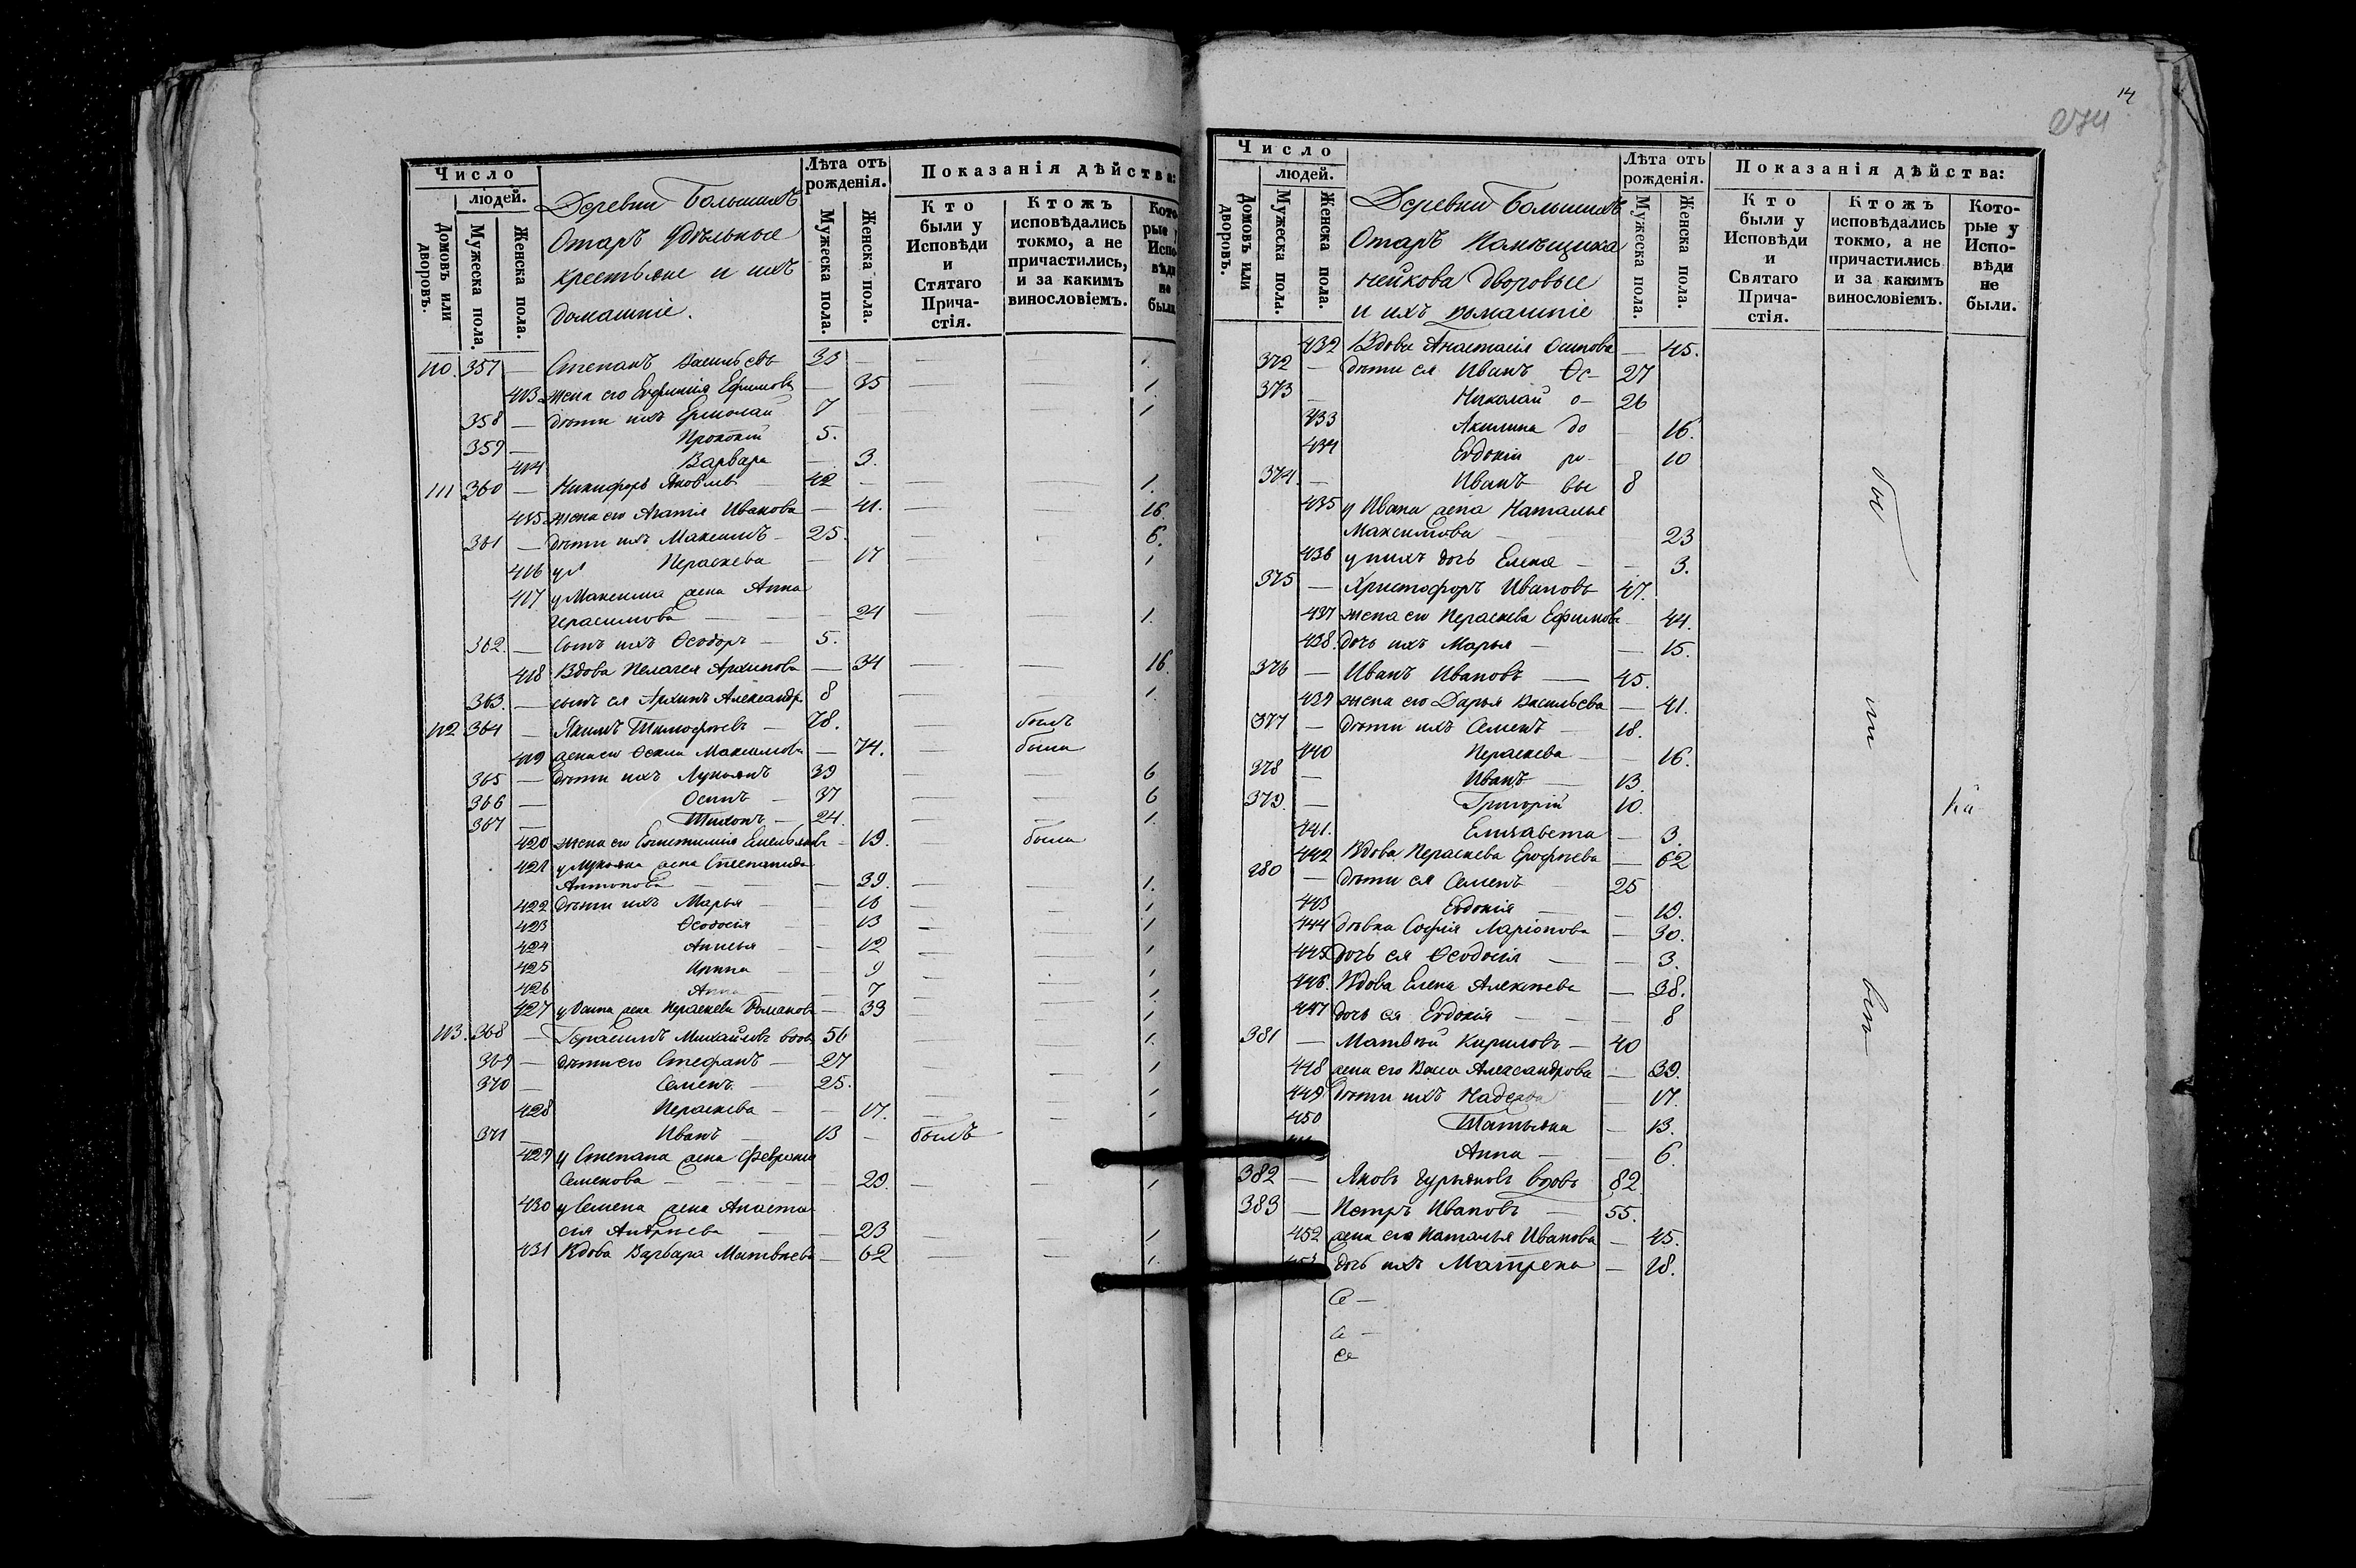 Число
людей.
Домовъ или дворовъ.
Мужеска пола.
Женска пола.
Деревни Большихъ
Отаръ Удѣльные
крестьяне и ихъ
домашніе.
Лѣта отъ рожденія.
Мужеска пола.
Женска пола.
Показанія дѣйства:
Кто были у Исповѣди и Стятаго Прича-стія.
Ктожъ исповѣдались токмо, а не причастились, и за какимъ винословіемъ.
Кото-рые у Испо-вѣди не были
110. 357 — Степанъ Васильевъ — — — 1.
413 жена его Евфимія Ефимова — 35 — — 1.
358 — дѣти ихъ Ермолай 7 — — — 1
359 — Прокопій 5.
414 Варвара — 3.
111 360 — Никифоръ Яковлевъ 42 — — 1.
415 жена его Агапія Иванова — 41. — — 16
361 — дѣти ихъ Максимъ — 25. — 6.
416 Пераскева — 17 — — 1
417 у Максима жена Анна
Герасимова — 24 — — 1.
362. — сынъ ихъ Ѳеодоръ — 5.
418 Вдова Пелагея Архипова — 34 — — 16
363. — сынъ ея Архипъ Александр. 8 — — 1.
112 364 — Якимъ Тимофѣевъ — 78. — былъ
419 жена его Максимова — 74. — была
365 — дѣти ихъ Лукьянъ 39 — — 6
366 — Осипъ — 37 — — 6
367 — Тихонъ — 24. — — 1.
420 жена его Емельянов — 19. — была
421 у Лукьяна жена Степанида
Антонова — — 39. — — 1.
422 дѣти ихъ Марья — — 16 — — 1
423 Ѳеодосія — — 13 — — 1
424 — — 12 — — 1
425 Ирина — — 9 — — 1
426 Анна — — 7 — — 1
427 у Осипа жена Пераскева Романова — 39 — — 1
113. 368 — Герасимъ Михайловъ вдовъ 56 — — 1.
369 — дѣти его Стефанъ — 27 — — 1
370 — Семенъ — 25. — — 1
428 Пераскева — — 17. — — 1
371 — Иванъ — 13 — былъ
429 у Степана жена Февронія
Семенова — — 29. — — 1
430 у Семена жена Анаста
сія Андрѣева — — 23 — — 1
431 Вдова Варвара Матвѣева — 62 — — 1.
14
274
Число
людей.
Домовъ или дворовъ.
Мужеска пола.
Женска пола.
Деревни Большихъ
Отаръ Помѣщика
нейкова дворовые
и ихъ домашніе
Лѣта отъ рожденія.
Мужеска пола.
Женска пола.
Показанія дѣйства:
Кто были у Исповѣди и Святаго Прича-стія.
Ктожъ исповѣдались токмо, а не причастились и за какимъ винословіемъ.
Кото-рые у Испо-вѣди не были.
432 Вдова Анастасія Осипова — 45.
372 — дѣти ея Иванъ Ѳе- 27
373 — Николай о- 26
433 Акилина до — 16.
434 Евдокія ро- — 10
374. — Иванъ вы 8
435 у Ивана жена Наталья
Максимова — 23
436 у нихъ дочь Елена — — 3.
375 — Христофоръ Ивановъ 47.
437 жена его Пераскева Ефимова — 44.
438. дочь ихъ Марья — — 15.
376 — Иванъ Ивановъ — 45.
439 жена его Дарья Васильева — 41.
377 — дѣти ихъ Семенъ — 18.
440 Пераскева — — 16.
378 — Иванъ — 13.
379. — Григорій 10.
441. Елизавета — 3.
442 Вдова Пераскева Ерофѣева — 62
380 — дѣти ея Семенъ — 25
443 Евдокія — — 19.
444 дѣвка Софія Ларіонова — 30.
445 дочь ея Ѳеодосія — — 3.
446. Вдова Елена Алексѣева — 38.
447 дочь ея Евдокія — — 8
381 — Матвѣй Кириловъ — 40
448 жена его Александрова — 39.
449 дѣти ихъ Надежда — 17.
450 Татьяна — 13.
Анна — — 6.
382 — Яковъ Гурьяновъ вдовъ 82.
383 — Петръ Ивановъ — 55.
452 жена его Наталья Иванова — 45.
дочь ихъ Матрена — 18.
бы
ли